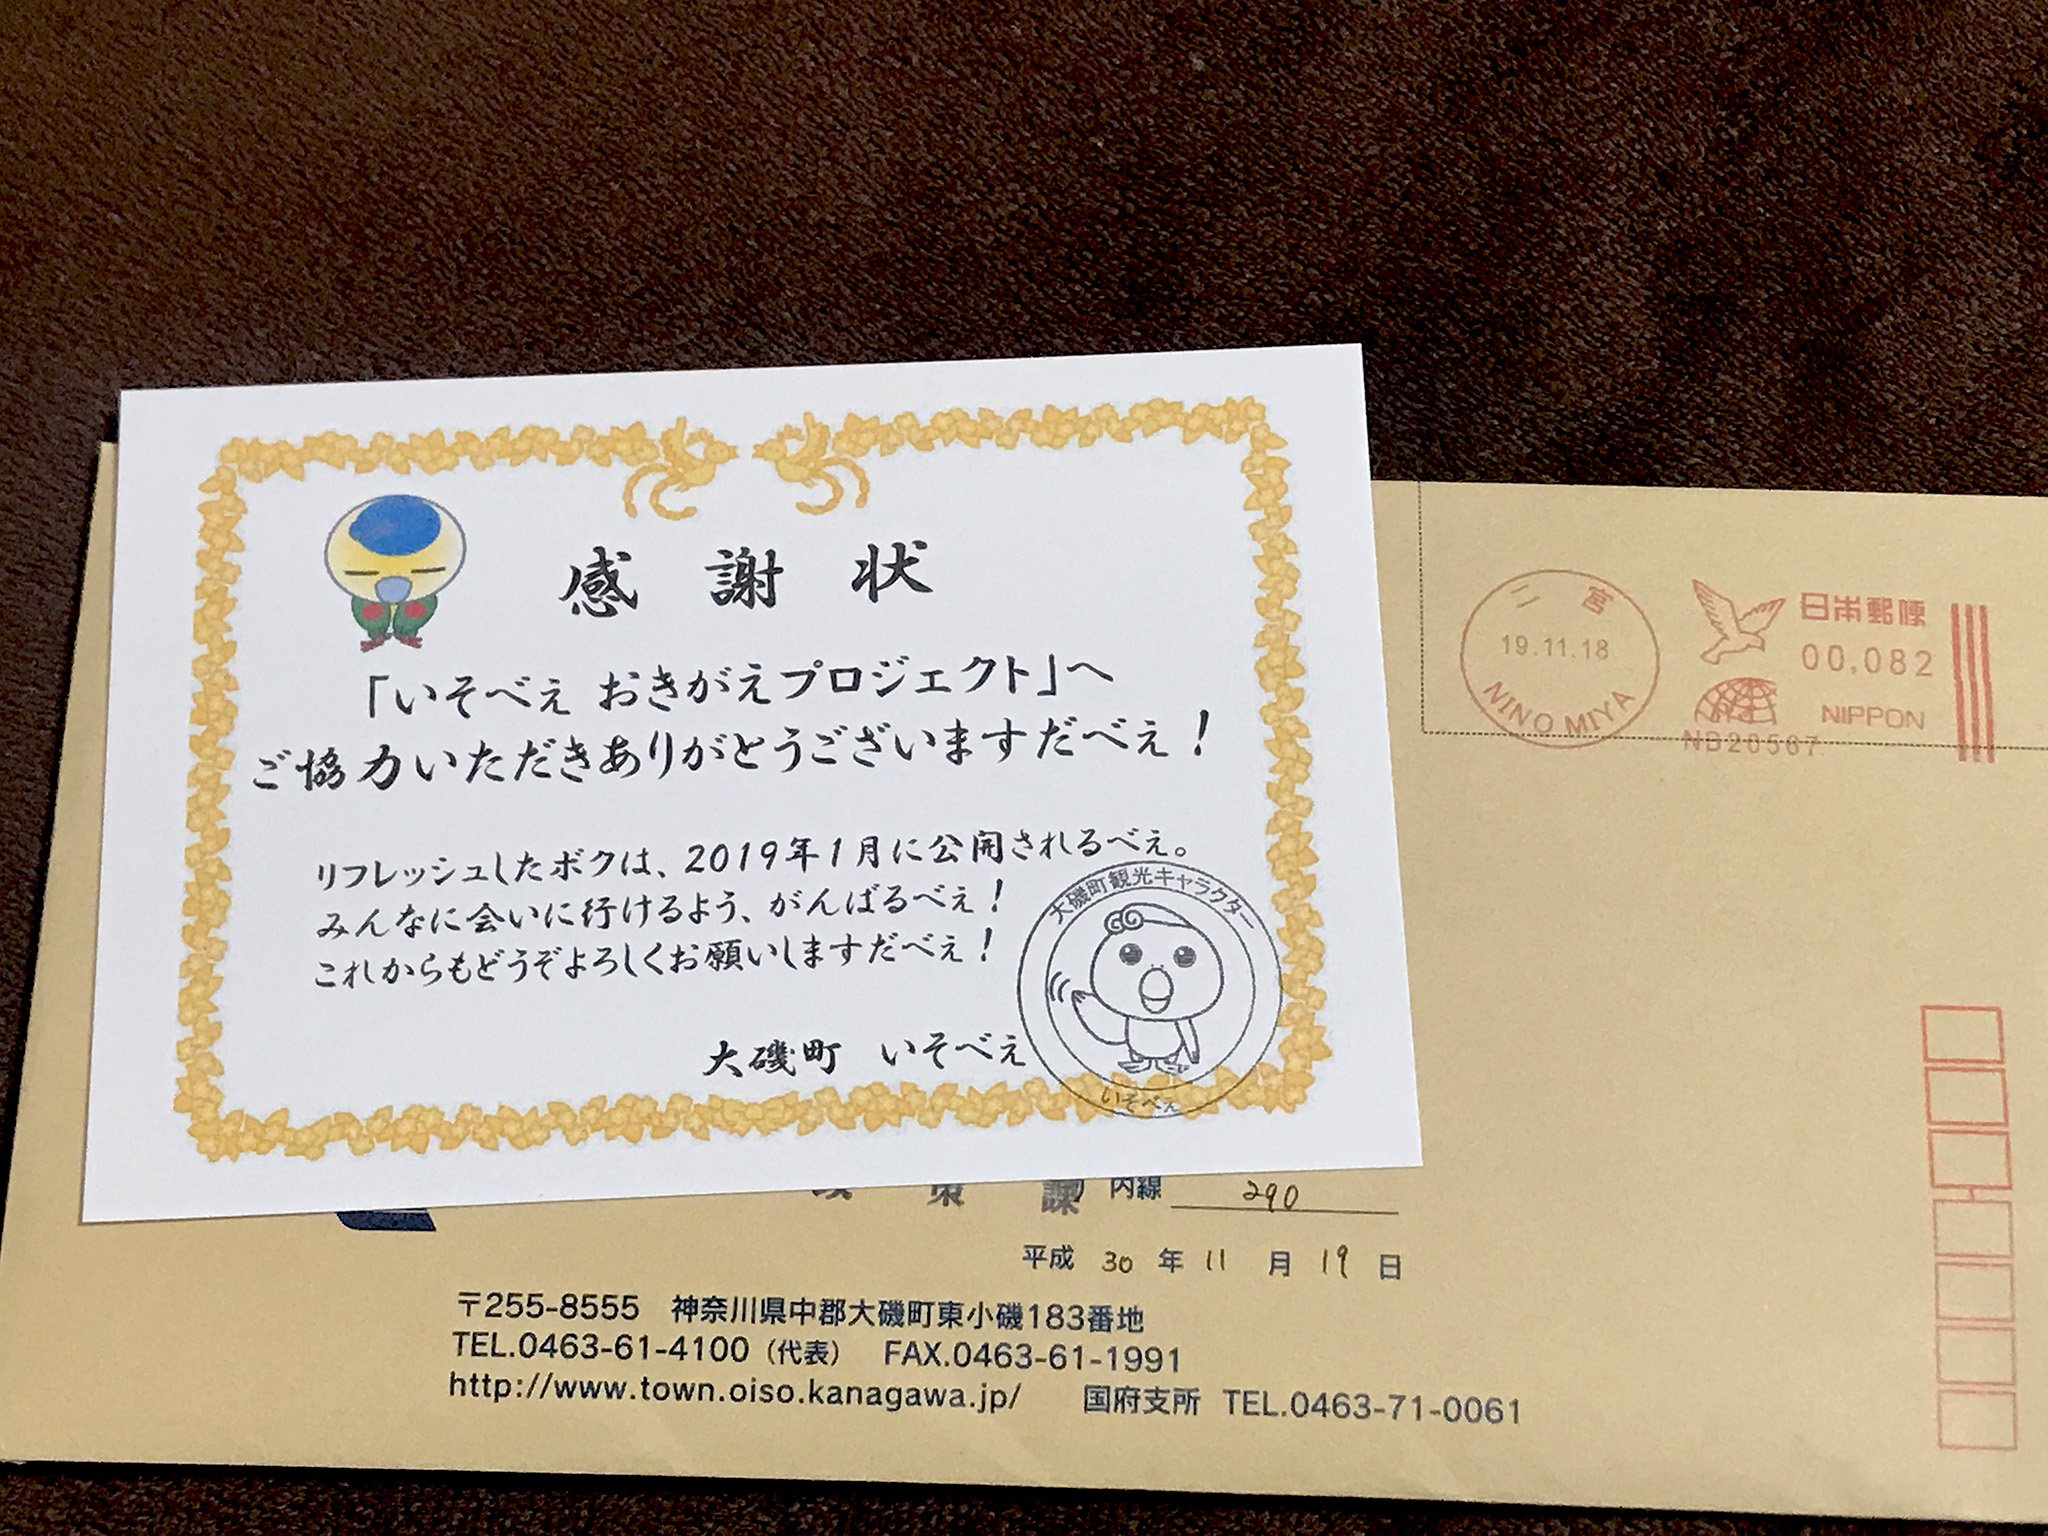 感謝状
「いそべぇ おきがえプロジェクト」へ
ご協力いただきありがとうございますだべぇ！
リフレッシュしたボクは、2019年1月に公開されるべぇ。
みんなに会いに行けるよう、がんばるべぇ！
これからもどうぞよろしくお願いしますだべぇ！
大磯町 いそべぇ
大磯町観光キャラクター
いそべぇ
二宮
19.11.18
NINOMIYA
日本郵便
00,082
NIPPON
策 課 内線 290
平成 30 年 11 月 19 日
〒255-8555 神奈川県中郡大磯町東小磯183番地
TEL.0463-61-4100（代表） FAX.0463-61-1991
http://www.town.oiso.kanagawa.jp/ 国府支所 TEL.0463-71-0061